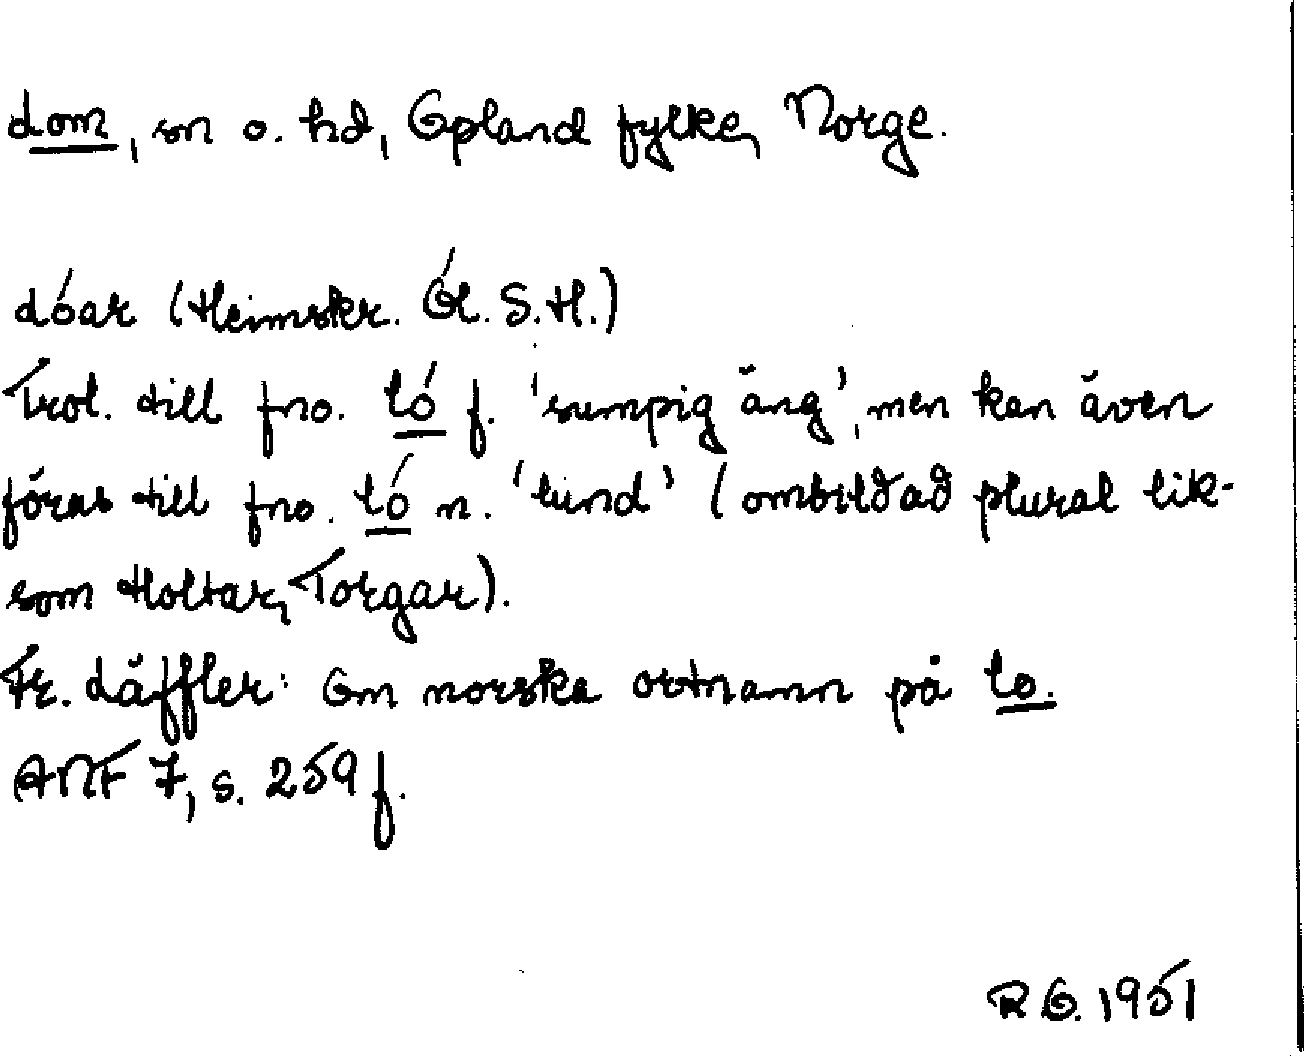 Lom, sn o. hd, Opland fylke, Norge.
Lóar (Heimskr. Ól. S. H.)
Trol. till fno. ló f. 'sumpig äng', men kan även
föras till fno. ló n. 'lund' (ombildad plural lik-
som Holtar, Torgar).
Fr. Läffler: Om norska ortnamn på lo.
ANF 7, s. 259 f.
R G. 1951